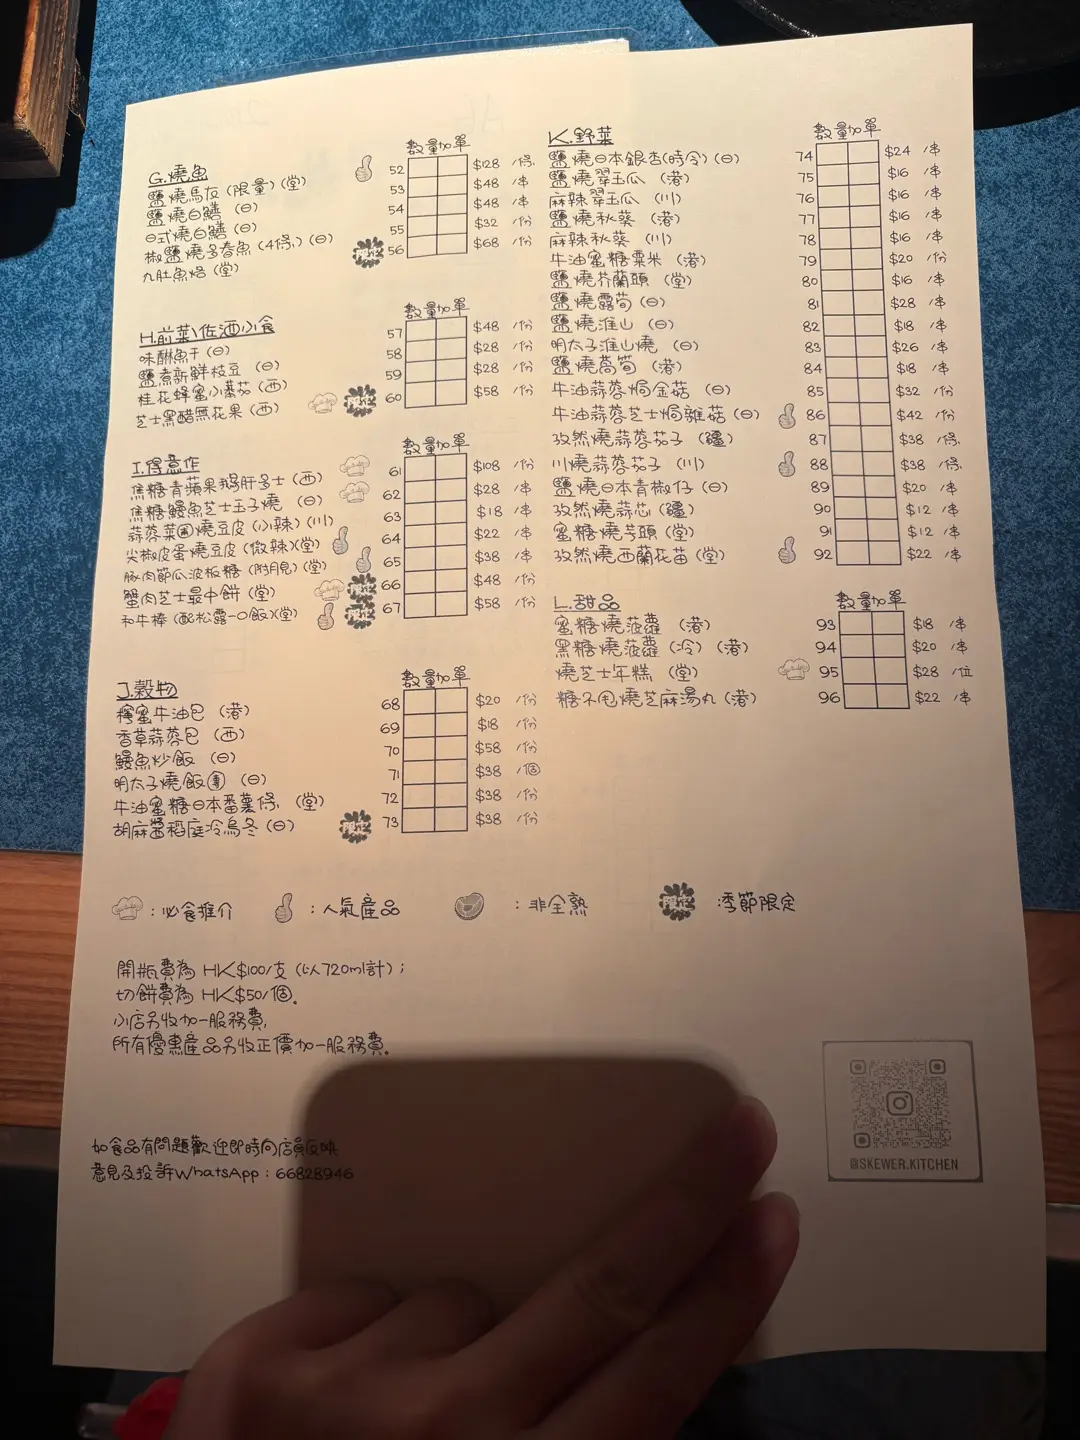 G.燒魚
數量加單
鹽燒馬友(限量)(堂) 52 $128 /條
鹽燒白鱔 (日) 53 $48 /串
日式燒白鱔 (日) 54 $48 /串
椒鹽燒多春魚(4條)(日) 55 $32 /份
九肚魚烙 (堂) 限定 56 $68 /份
H.前菜\佐酒小食
數量加單
味醂魚干 (日) 57 $48 /份
鹽煮新鮮枝豆 (日) 58 $28 /份
桂花蜂蜜小蕃茄 (西) 59 $28 /份
芝士黑醋無花果 (西) 限定 60 $58 /份
I.得意作
數量加單
焦糖青蘋果鵝肝多士 (西) 61 $108 /份
焦糖鰻魚芝士玉子燒 (日) 62 $28 /串
蒜蓉菜圃燒豆皮(小辣)(川) 63 $18 /串
尖椒皮蛋燒豆皮(微辣)(堂) 64 $22 /串
豚肉節瓜波板糖(附月見)(堂) 65 $38 /串
蟹肉芝士最中餅 (堂) 限定 66 $48 /份
和牛棒(配松露一口飯)(堂) 限定 67 $58 /份
J.穀物
數量加單
檸蜜牛油包 (港) 68 $20 /份
香草蒜蓉包 (西) 69 $18 /份
鰻魚炒飯 (日) 70 $58 /份
明太子燒飯團 (日) 71 $38 /個
牛油蜜糖日本番薯條 (堂) 72 $38 /份
胡麻醬稻庭冷烏冬(日) 限定 73 $38 /份
K.野菜
數量加單
鹽燒日本銀杏(時令)(日) 74 $24 /串
鹽燒翠玉瓜 (港) 75 $16 /串
麻辣翠玉瓜 (川) 76 $16 /串
鹽燒秋葵 (港) 77 $16 /串
麻辣秋葵 (川) 78 $16 /串
牛油蜜糖粟米 (港) 79 $20 /份
鹽燒芥蘭頭 (堂) 80 $16 /串
鹽燒露筍 (日) 81 $28 /串
鹽燒淮山 (日) 82 $18 /串
明太子淮山燒 (日) 83 $26 /串
鹽燒萵筍 (港) 84 $18 /串
牛油蒜蓉焗金菇 (日) 85 $32 /份
牛油蒜蓉芝士焗雜菇 (日) 86 $42 /份
孜然燒蒜蓉茄子 (疆) 87 $38 /條
川燒蒜蓉茄子 (川) 88 $38 /條
鹽燒日本青椒仔 (日) 89 $20 /串
孜然燒蒜芯 (疆) 90 $12 /串
蜜糖燒芋頭 (堂) 91 $12 /串
孜然燒西蘭花苗 (堂) 92 $22 /串
L.甜品
數量加單
蜜糖燒菠蘿 (港) 93 $18 /串
黑糖燒菠蘿 (冷) (港) 94 $20 /串
燒芝士年糕 (堂) 95 $28 /位
糖不甩燒芝麻湯丸 (港) 96 $22 /串
:必食推介 :人氣產品 :非全熟 限定 :季節限定
開瓶費為 HK$100/支 (以720ml計);
切餅費為 HK$50/個。
小店另收加一服務費,
所有優惠產品另收正價加一服務費。
如食品有問題歡迎即時向店員反映
意見及投訴WhatsApp:66828946
@SKEWER.KITCHEN